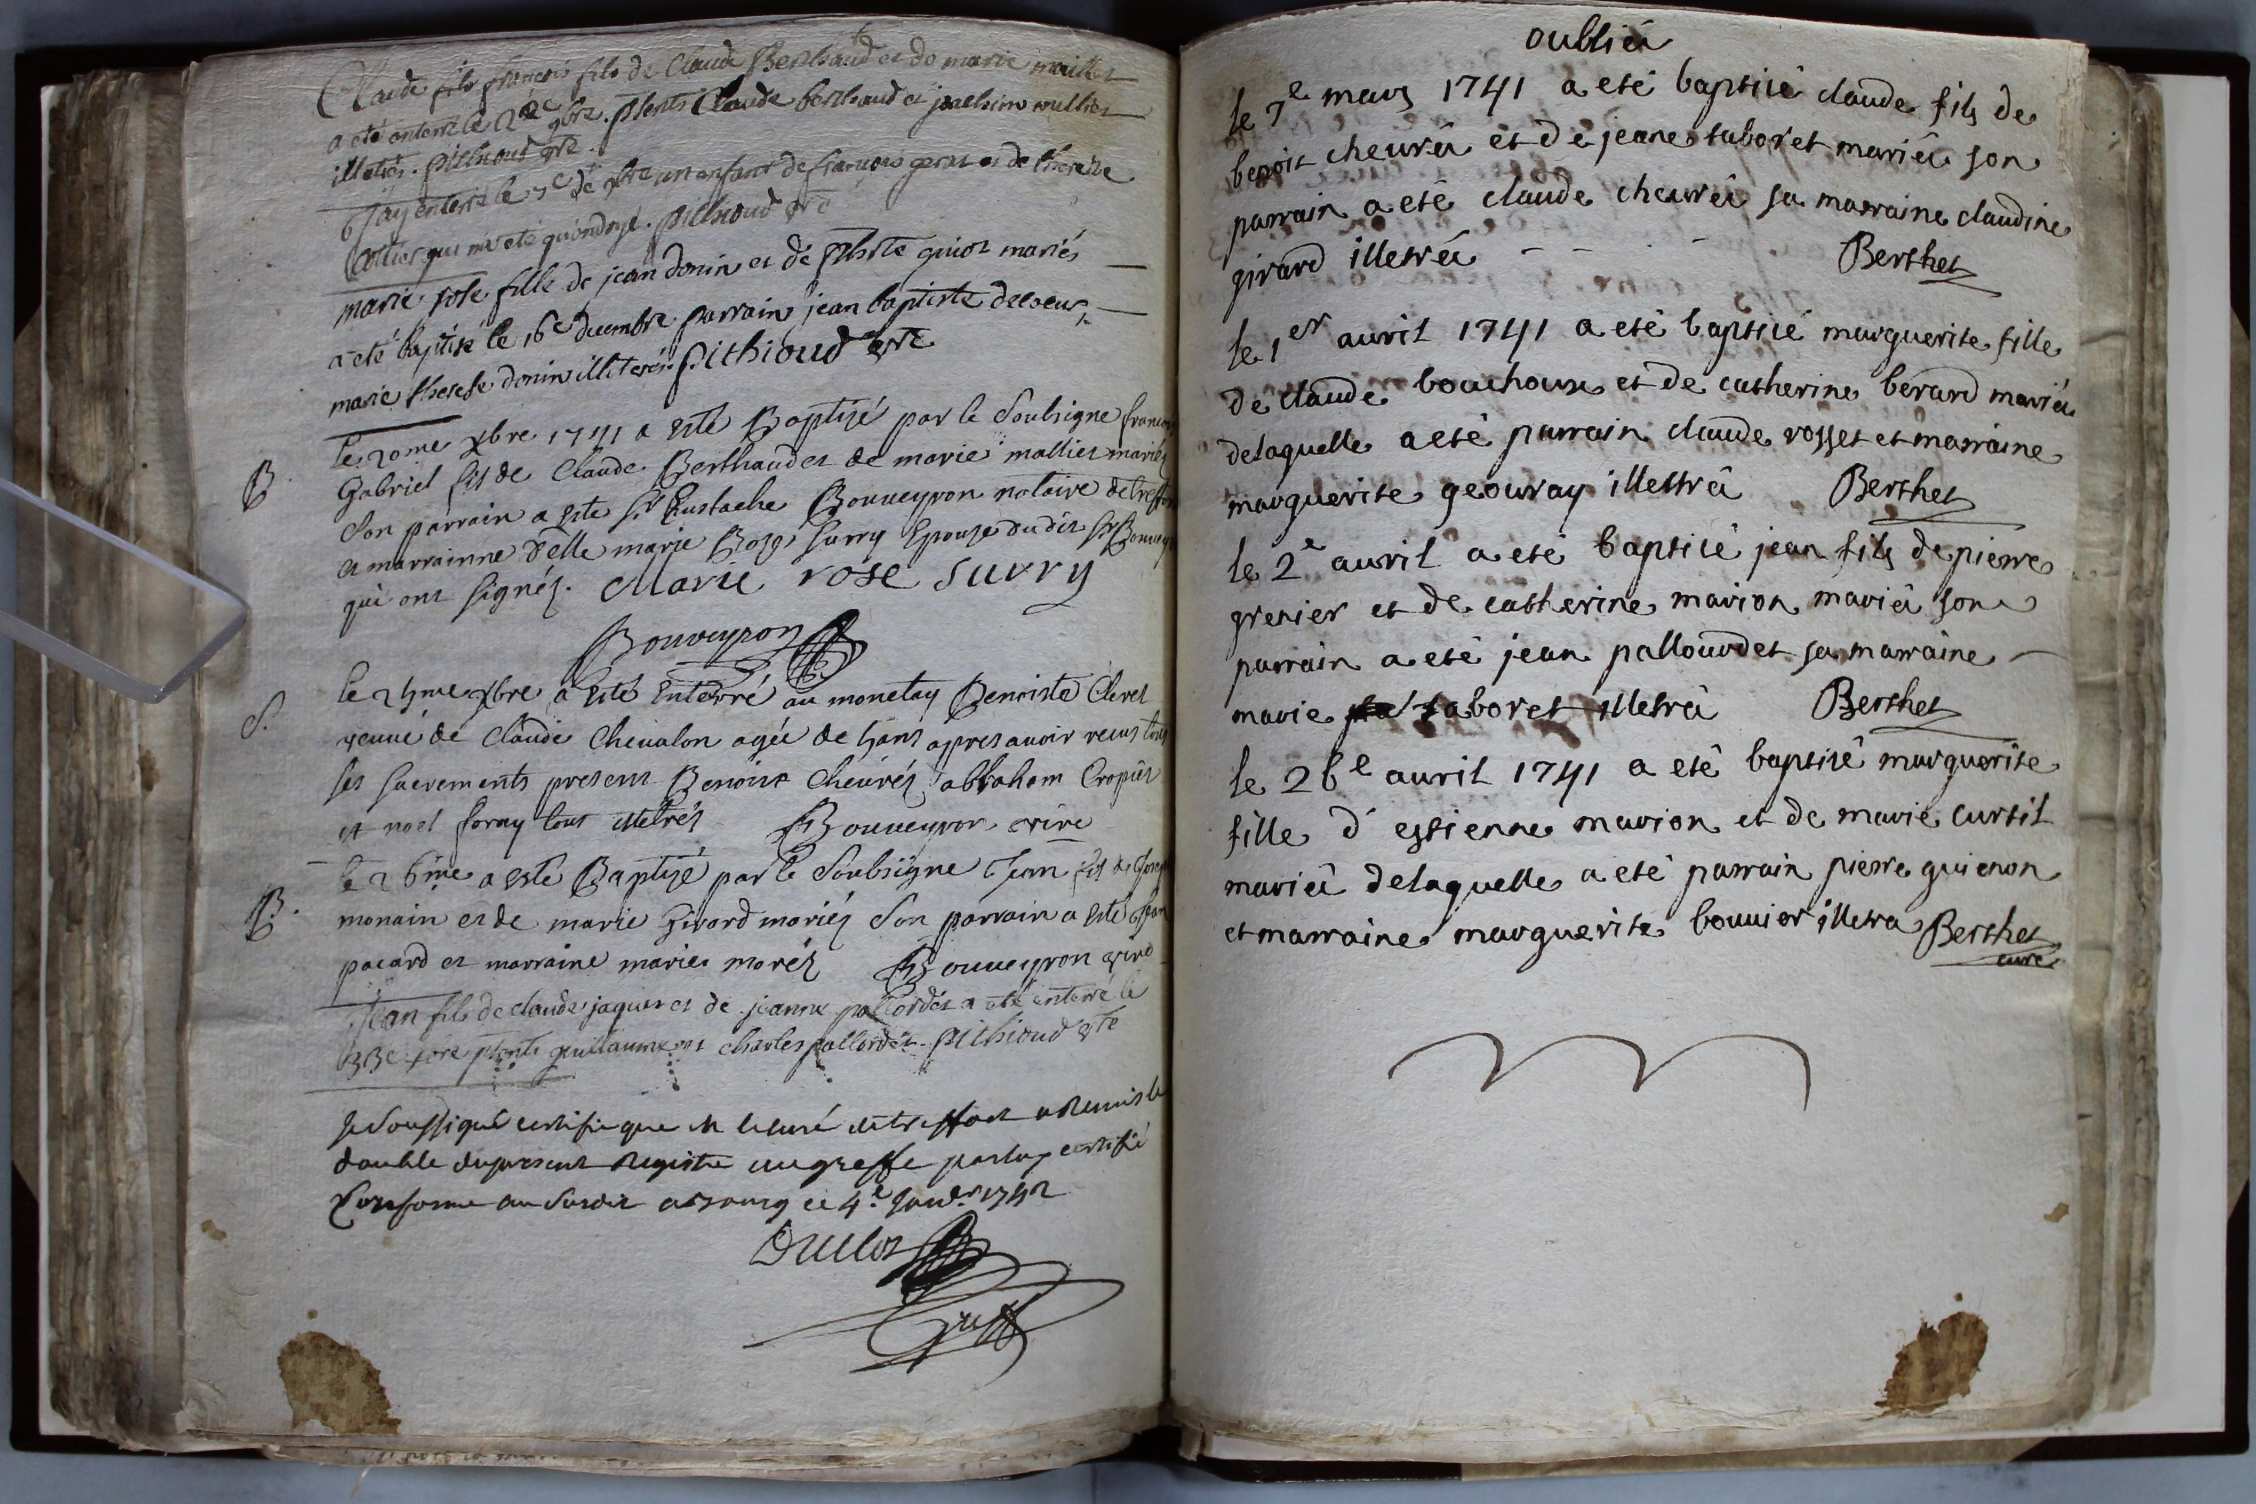 Claude fils francois fils de Claude Berthaud et de marie mallier
a eté enterré le 2de 9bre. psents Claude berthaud et mullier
illetrés. pithioud vre
jay enterré le 7e de xbre un enfant de francois perrat et de therese
qui n'a eté qu'ondoyé. pithioud vre
marie rose fille de jean donin et de phte guiot mariés
a eté baptisé le 16e decembre parrain jean baptiste
marie therese donin illiterés. pithioud vre
B
le 20me xbre 1741 a esté Baptizé par le Soubsigne francois
Gabriel fils de Claude Berthaud et de marie mallier mariez
Son parrain a este Sr Eustache Bouveyron notaire de treffort
et marrainne delle marie Rose Surry Epouze dudit Sr Bouveyron
qui ont signéz. Marie rose surry
Bouveyron
S.
le 25me xbre a esté Enterré au monetay Benoiste Cleret
veuve de Claude Chevalon agée de ans apres avoir recus tous
ses sacrements present Benoist Chevréz abbraham Cropier
et noel foray tous illetréz Bouveyron vire
B.
le 26me a esté Baptizé par le Soubsigne Jean fils de
monain et de marie Girard mariéz Son parrain a esté Jean
pacard et marraine marie moréz Bouveyron vire
Jean fils de claude jaquer et de jeanne pallordet a eté enterré le
psents guillaume et charles pallordet. pithioud vre
Je soussigné certifie que Mr le curé de treffort a Remis le
double du present Registre au greffe par luy certifié
Conforme au Susdit a Bourg ce 4e Janer 1742
Duclos
Greff
oubliés
le 7e mars 1741 a eté baptisé claude fils de
benoit chevré et de jeane taboret mariés son
parrain a eté claude chevré sa marraine claudine
girard illetrés Berthet
le 1er avril 1741 a eté baptisé marguerite fille
de claude bouchoux et de catherine berard mariés
delaquelle a eté parrain claude rosset et marraine
marguerite geouray illettrés Berthet
le 2e avril a eté baptisé jean fils de pierre
grenier et de catherine marion mariés son
parrain a eté jean pallourdet sa marraine
marie taboret illetrés Berthet
le 26e avril 1741 a eté baptisé marguerite
fille d'estienne marion et de marie curtil
mariés delaquelle a eté parrain pierre guienon
et marraine marguerite bouvier illetra Berthet
curé